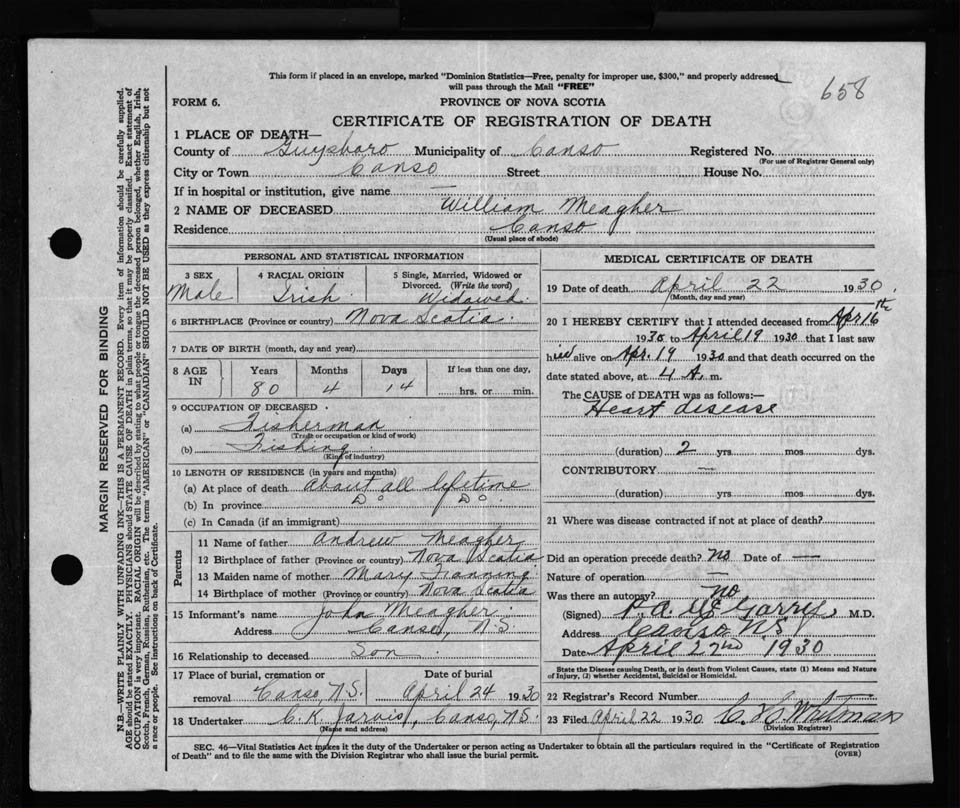 This form if placed in an envelope, marked "Dominion Statistics—Free, penalty for improper use, $300," and properly addressed
will pass through the Mail "FREE"
658
FORM 6.
PROVINCE OF NOVA SCOTIA
CERTIFICATE OF REGISTRATION OF DEATH
1 PLACE OF DEATH—
County of Guysboro Municipality of Canso Registered No.
(For use of Registrar General only)
City or Town Canso Street House No.
If in hospital or institution, give name —
2 NAME OF DECEASED William Meagher
Residence Canso
(Usual place of abode)
PERSONAL AND STATISTICAL INFORMATION
3 SEX Male
4 RACIAL ORIGIN Irish
5 Single, Married, Widowed or Divorced. (Write the word) Widowed.
6 BIRTHPLACE (Province or country) Nova Scotia.
7 DATE OF BIRTH (month, day and year)
8 AGE IN Years Months Days If less than one day,
80 4 14 hrs. or min.
9 OCCUPATION OF DECEASED
(a) Fisherman
(Trade or occupation or kind of work)
(b) Fishing
(Kind of industry)
10 LENGTH OF RESIDENCE (in years and months)
(a) At place of death About all lifetime
(b) In province Do Do
(c) In Canada (if an immigrant)
Parents
11 Name of father Andrew Meagher
12 Birthplace of father (Province or country) Nova Scotia
13 Maiden name of mother Mary
14 Birthplace of mother (Province or country) Nova Scotia
15 Informant's name John Meagher
Address Canso, N.S.
16 Relationship to deceased Son
17 Place of burial, cremation or removal Canso N.S.
Date of burial April 24 1930
18 Undertaker C. K. Jarvis, Canso, N.S.
(Name and address)
MEDICAL CERTIFICATE OF DEATH
19 Date of death April 22 1930
(Month, day and year)
20 I HEREBY CERTIFY that I attended deceased from Apr 16th
1930 to April 19 1930 that I last saw
him alive on Apr. 19 1930 and that death occurred on the
date stated above, at 4 A. m.
The CAUSE of DEATH was as follows:—
Heart disease
(duration) 2 yrs mos dys.
CONTRIBUTORY —
(duration) yrs mos dys.
21 Where was disease contracted if not at place of death?
Did an operation precede death? no Date of —
Nature of operation —
Was there an autopsy? no
(Signed) M.D.
Address Canso N.S.
Date April 22nd 1930
State the Disease causing Death, or in death from Violent Causes, state (1) Means and Nature
of Injury, (2) whether Accidental, Suicidal or Homicidal.
22 Registrar's Record Number
23 Filed April 22 1930 Whitman
(Division Registrar)
SEC. 46—Vital Statistics Act makes it the duty of the Undertaker or person acting as Undertaker to obtain all the particulars required in the "Certificate of Registration
of Death" and to file the same with the Division Registrar who shall issue the burial permit.
(OVER)
MARGIN RESERVED FOR BINDING
N.B.—WRITE PLAINLY WITH UNFADING INK—THIS IS A PERMANENT RECORD. Every item of information should be carefully supplied.
AGE should be stated EXACTLY. PHYSICIANS should STATE CAUSE OF DEATH in plain terms, so that it may be properly classified. Exact statement of
OCCUPATION is very important. RACIAL ORIGIN will be described by stating to what people or tongue the deceased person belonged, whether English, Irish,
Scotch, French, German, Russian, Ruthenian, etc. The terms "AMERICAN" or "CANADIAN" SHOULD NOT BE USED as they express citizenship but not
a race or people. See instructions on back of Certificate.